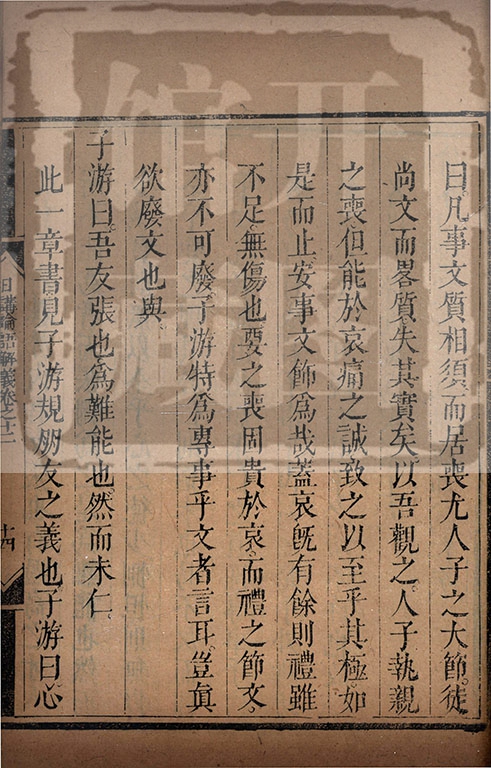 曰凡事文質相須而居喪尤人子之大節徒
尚文而畧質失其實矣以吾觀之人子執親
之喪但能於哀痛之誠致之以至乎其極如
是而止安事文飾爲哉蓋哀旣有餘則禮雖
不足無傷也要之喪固貴於哀而禮之節文
亦不可廢子游特爲專事乎文者言耳豈眞
欲廢文也與
子游曰吾友張也爲難能也然而未仁
此一章書見子游規朋友之義也子游曰心
日講論語解義卷之十二
十四